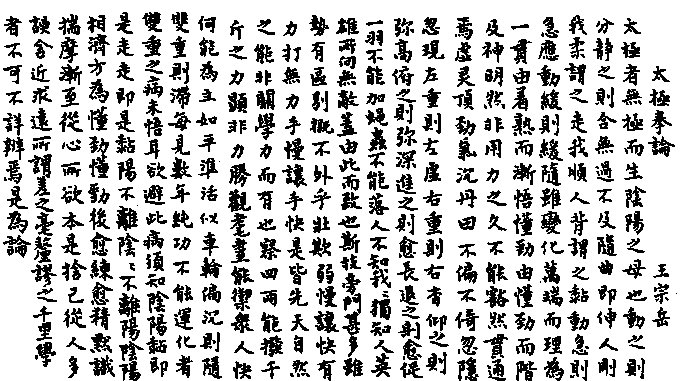 太極拳論　王宗岳
太極者無極而生陰陽之母也動之則
分静之則合無過不及隨曲即伸人剛
我柔謂之走我順人背謂之黏動急則
急應動緩則緩隨雖變化萬端而理為
一貫由着熟而漸悟懂勁由懂勁而階
及神明然非用力之久不能豁然貫通
焉虛灵頂勁氣沉丹田不偏不倚忽隱
忽現左重則左虛右重則右杳仰之則
弥高俯之則弥深進之則愈長退之則愈促
一羽不能加蝇蟲不能落人不知我〻獨知人英
雄所向無敵蓋由此而致也斯技旁門甚多雖
勢有區别概不外乎壯欺弱慢讓快有
力打無力手慢讓手快是皆先天自然
之能非關學力而有也察四兩能撥千
斤之力顯非力勝觀耄耋能禦衆人快
何能為立如平準活似車輪偏沉則隨
雙重則滯每見數年純功不能運化者
雙重之病未悟耳欲避此病須知陰陽黏即
是走走即是黏陽不離陰〻不離陽陰陽
相濟方為懂勁懂勁後愈練愈精默識
揣摩漸至從心所欲本是捨己從人多
誤舍近求遠所謂差之毫釐謬之千里學
者不可不詳辨焉是為論